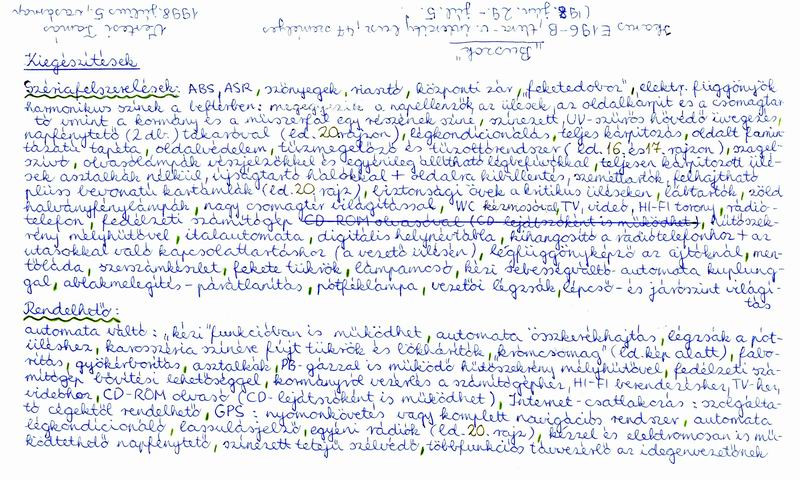 Vértesi Tamás
1998. július 5., vasárnap
Ikarus E196-B túra- v. intercity busz, 47 személyes
(1998. jún. 29 - júl. 5.
„Buszok"
Kiegészítések
Szériafelszerelések: ABS, ASR, szőnyegek, riasztó, központi zár, „feketedoboz", elektr. függönyök
harmonikus színek a beltérben: megegyezik a napellenzők az ülések, az oldalkárpit és a csomagtar
tó vmint a kormány és a műszerfal egy részének színe, színezett, UV-szűrős hővédő üvegezés,
napfénytető (2 db.) takaróval (ld. 20. rajzon), légkondicionálás, teljes kárpitozás, oldalt
tapéta, oldalvédelem, tűzmegelőző és tűzoltórendszer (ld. 16. és 17. rajzon), szagel-
szívó, olvasólámpák vészjelzőkkel és egyénileg állítható légbefúvókkal, teljesen kárpitozott ülé-
sek asztalkák nélkül, újságtartó hálókkal + oldalra kibillentés, szemétkosár, felhajtható
plüss bevonatú kartámlák (ld. 20. rajz), biztonsági övek a kritikus üléseken, lábtartók, zöld
halványfénylámpák, nagy csomagtér világítással, WC kézmosóval, TV, videó, HI-FI torony, rádió-
telefon, fedélzeti számítógép CD-ROM olvasóval (CD lejátszóként is működhet), hűtőszek-
rény mélyhűtővel, italautomata, digitális helynévtábla, kihangosító a rádiótelefonhoz + az
utasokkal való kapcsolattartáshoz (a vezető ülésén), légfüggönyképző az ajtóknál, men-
tőláda, szerszámkészlet, fekete tükrök, lámpamosó, kézi sebességváltó automata kuplung-
gal, ablakmelegítés - páratlanítás, pótféklámpa, vezetői légzsák, lépcső- és járószint világí-
tás
Rendelhető:
automata váltó: „kézi" funkcióban is működhet, automata összkerékhajtás, légzsák a pót-
üléshez, karosszéria színére fújt tükrök és lökhárítók, „krómcsomag" (ld. kép alatt), fabo-
rítás, gyökérborítás, asztalkák, PB-gázzal is működő hűtőszekrény mélyhűtővel, fedélzeti szá-
mítógép bővítési lehetőséggel, kormányról vezérlés a számítógéphez, HI-FI berendezéshez, TV-hez,
videóhoz, CD-ROM olvasó (CD-lejátszóként is működhet), Internet-csatlakozás: szolgálta-
tó cégektől rendelhető, GPS: nyomonkövetés vagy komplett navigációs rendszer, automata
légkondicionáló, lassulásjelző, egyéni rádiók (ld. 20. rajz), kézzel és elektromosan is mű-
ködtethető napfénytető, színezett tetejű szélvédő, többfunkciós távvezérlő az idegenvezetőnek